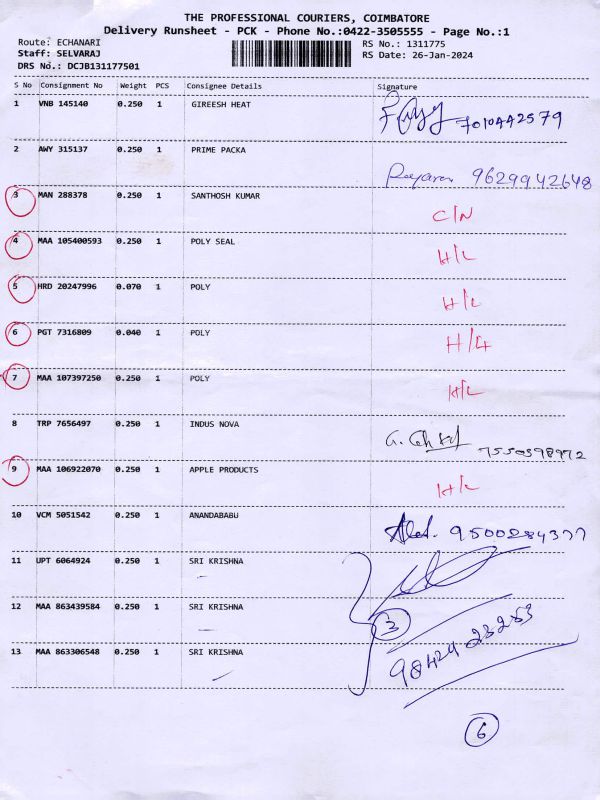 THE PROFESSIONAL COURIERS, COIMBATORE
Delivery Runsheet - PCK - Phone No.:0422-3505555 - Page No.:1
Route: ECHANARI RS No.: 1311775
Staff: SELVARAJ RS Date: 26-Jan-2024
DRS No.: DCJB131177501
S No Consignment No Weight PCS Consignee Details Signature
1 VNB 145140 0.250 1 GIREESH HEAT
7010442579
2 AWY 315137 0.250 1 PRIME PACKA
9629942648
3 MAN 288378 0.250 1 SANTHOSH KUMAR
C/N
4 MAA 105400593 0.250 1 POLY SEAL
H/L
5 HRD 20247996 0.070 1 POLY
H/L
6 PGT 7316809 0.040 1 POLY
7 MAA 107397250 0.250 1 POLY
H/L
8 TRP 7656497 0.250 1 INDUS NOVA
7550398972
9 MAA 106922070 0.250 1 APPLE PRODUCTS
H/L
10 VCM 5051542 0.250 1 ANANDABABU
9500284377
11 UPT 6064924 0.250 1 SRI KRISHNA
12 MAA 863439584 0.250 1 SRI KRISHNA
3
13 MAA 863306548 0.250 1 SRI KRISHNA
98424 23253
6